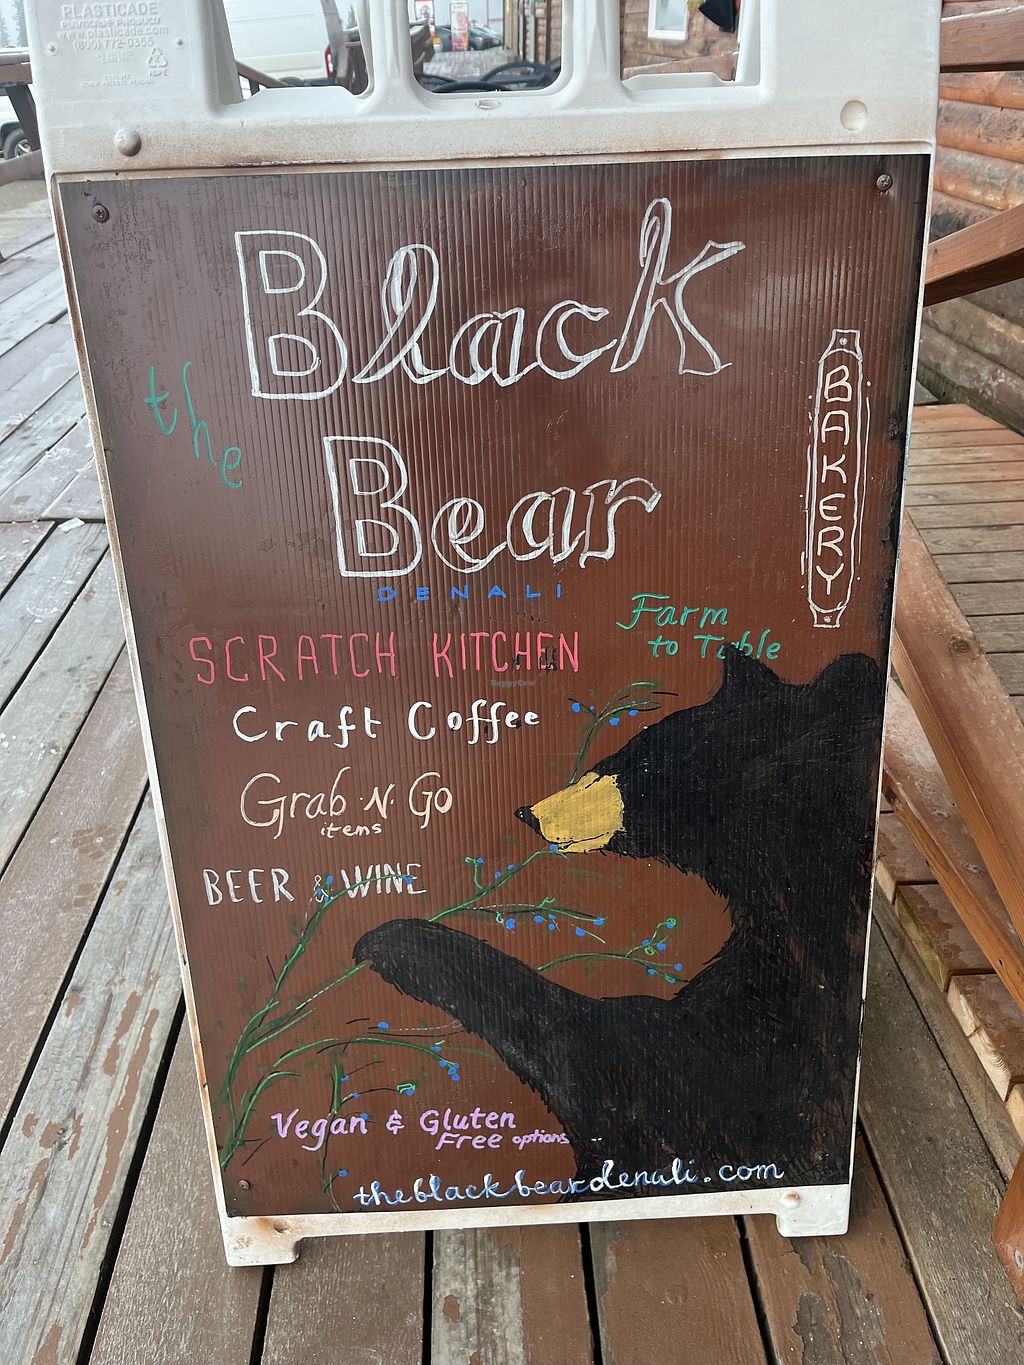 PLASTICADE
PLASTICADE PRODUCTS
www.plasticade.com
(800) 772-0355
HDPE
Black
the
Bear
DENALI
BAKERY
SCRATCH KITCHEN
Farm
to Table
HappyCow
Craft Coffee
Grab 'N' Go
items
BEER & WINE
Vegan & Gluten
Free options...
theblackbeardenali.com